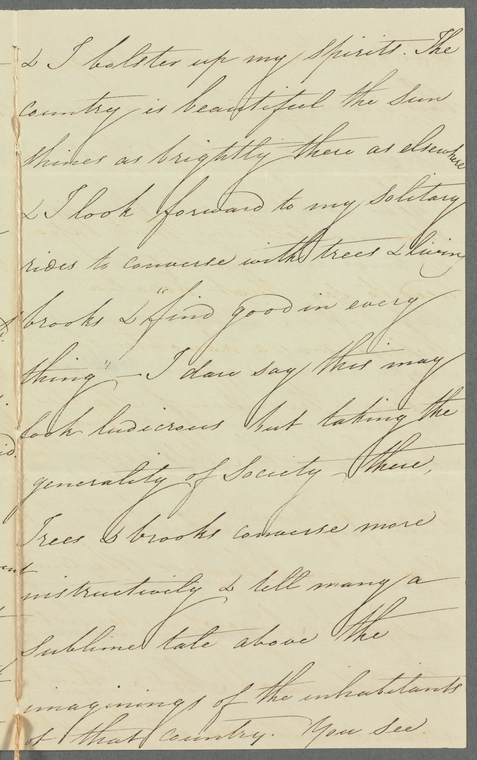 & I bolster up my spirits. The
country is beautiful the sun
shines as brightly there as elsewhere
& I look forward to my solitary
rides to converse with trees & living
brooks & "find good in every
thing" - I dare say this may
look ludicrous but taking the
generality of Society there,
Trees & brooks converse more
instructively & tell many a
sublime tale above the
imaginings of the inhabitants
of that country. You see